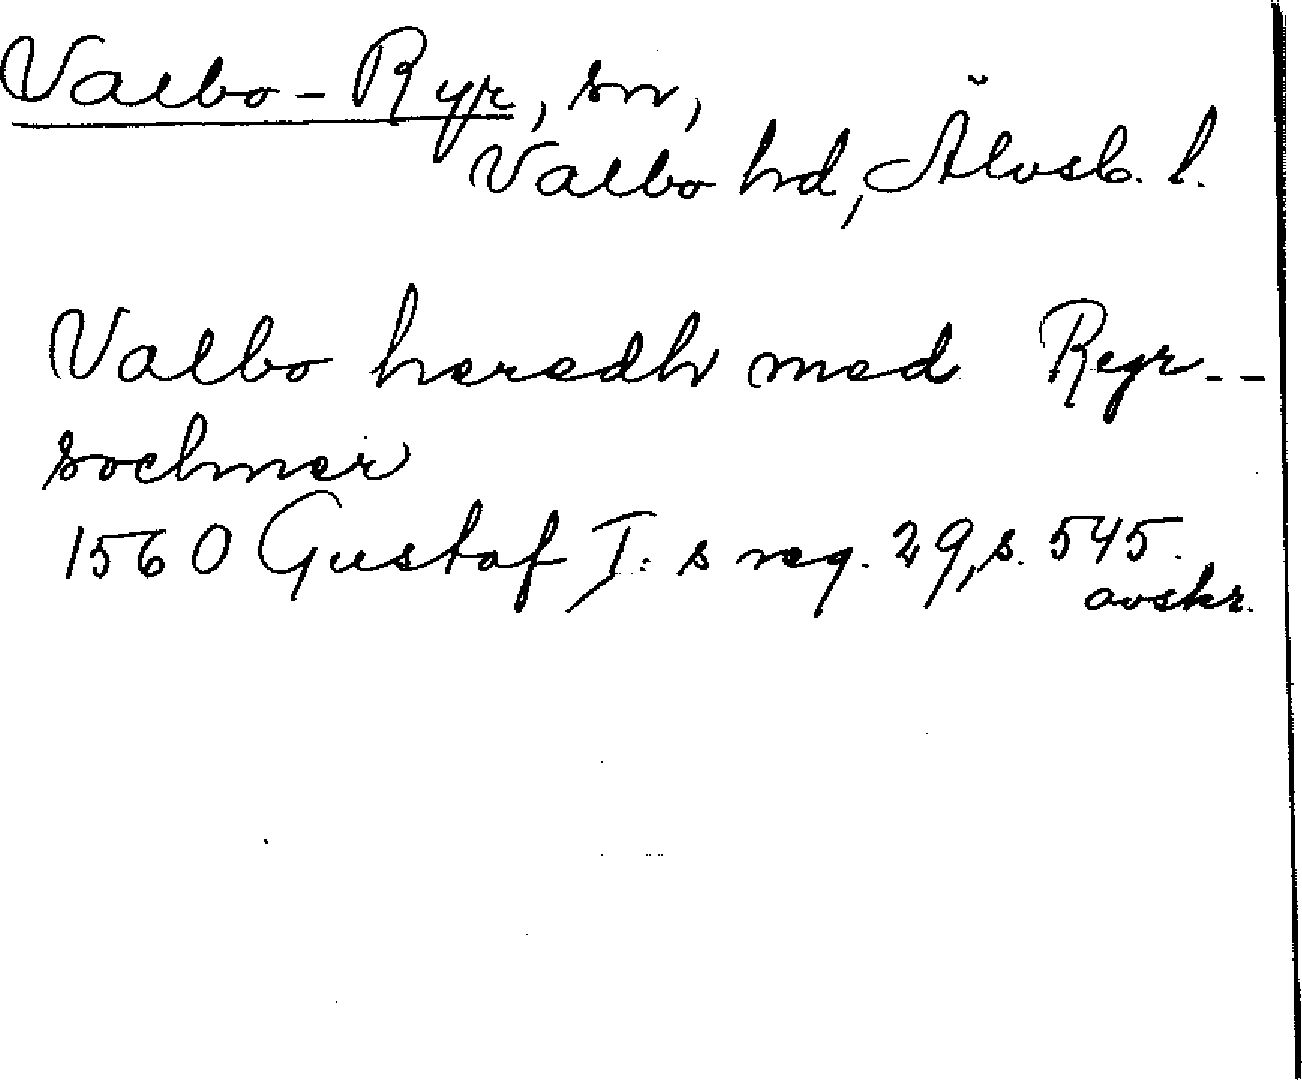 Valbo-Ryr, sn,
Valbo hd, Älvsb. l.
Valbo heredh med Regr--
sochner
1560 Gustaf I:s reg. 29, s. 545.
avskr.